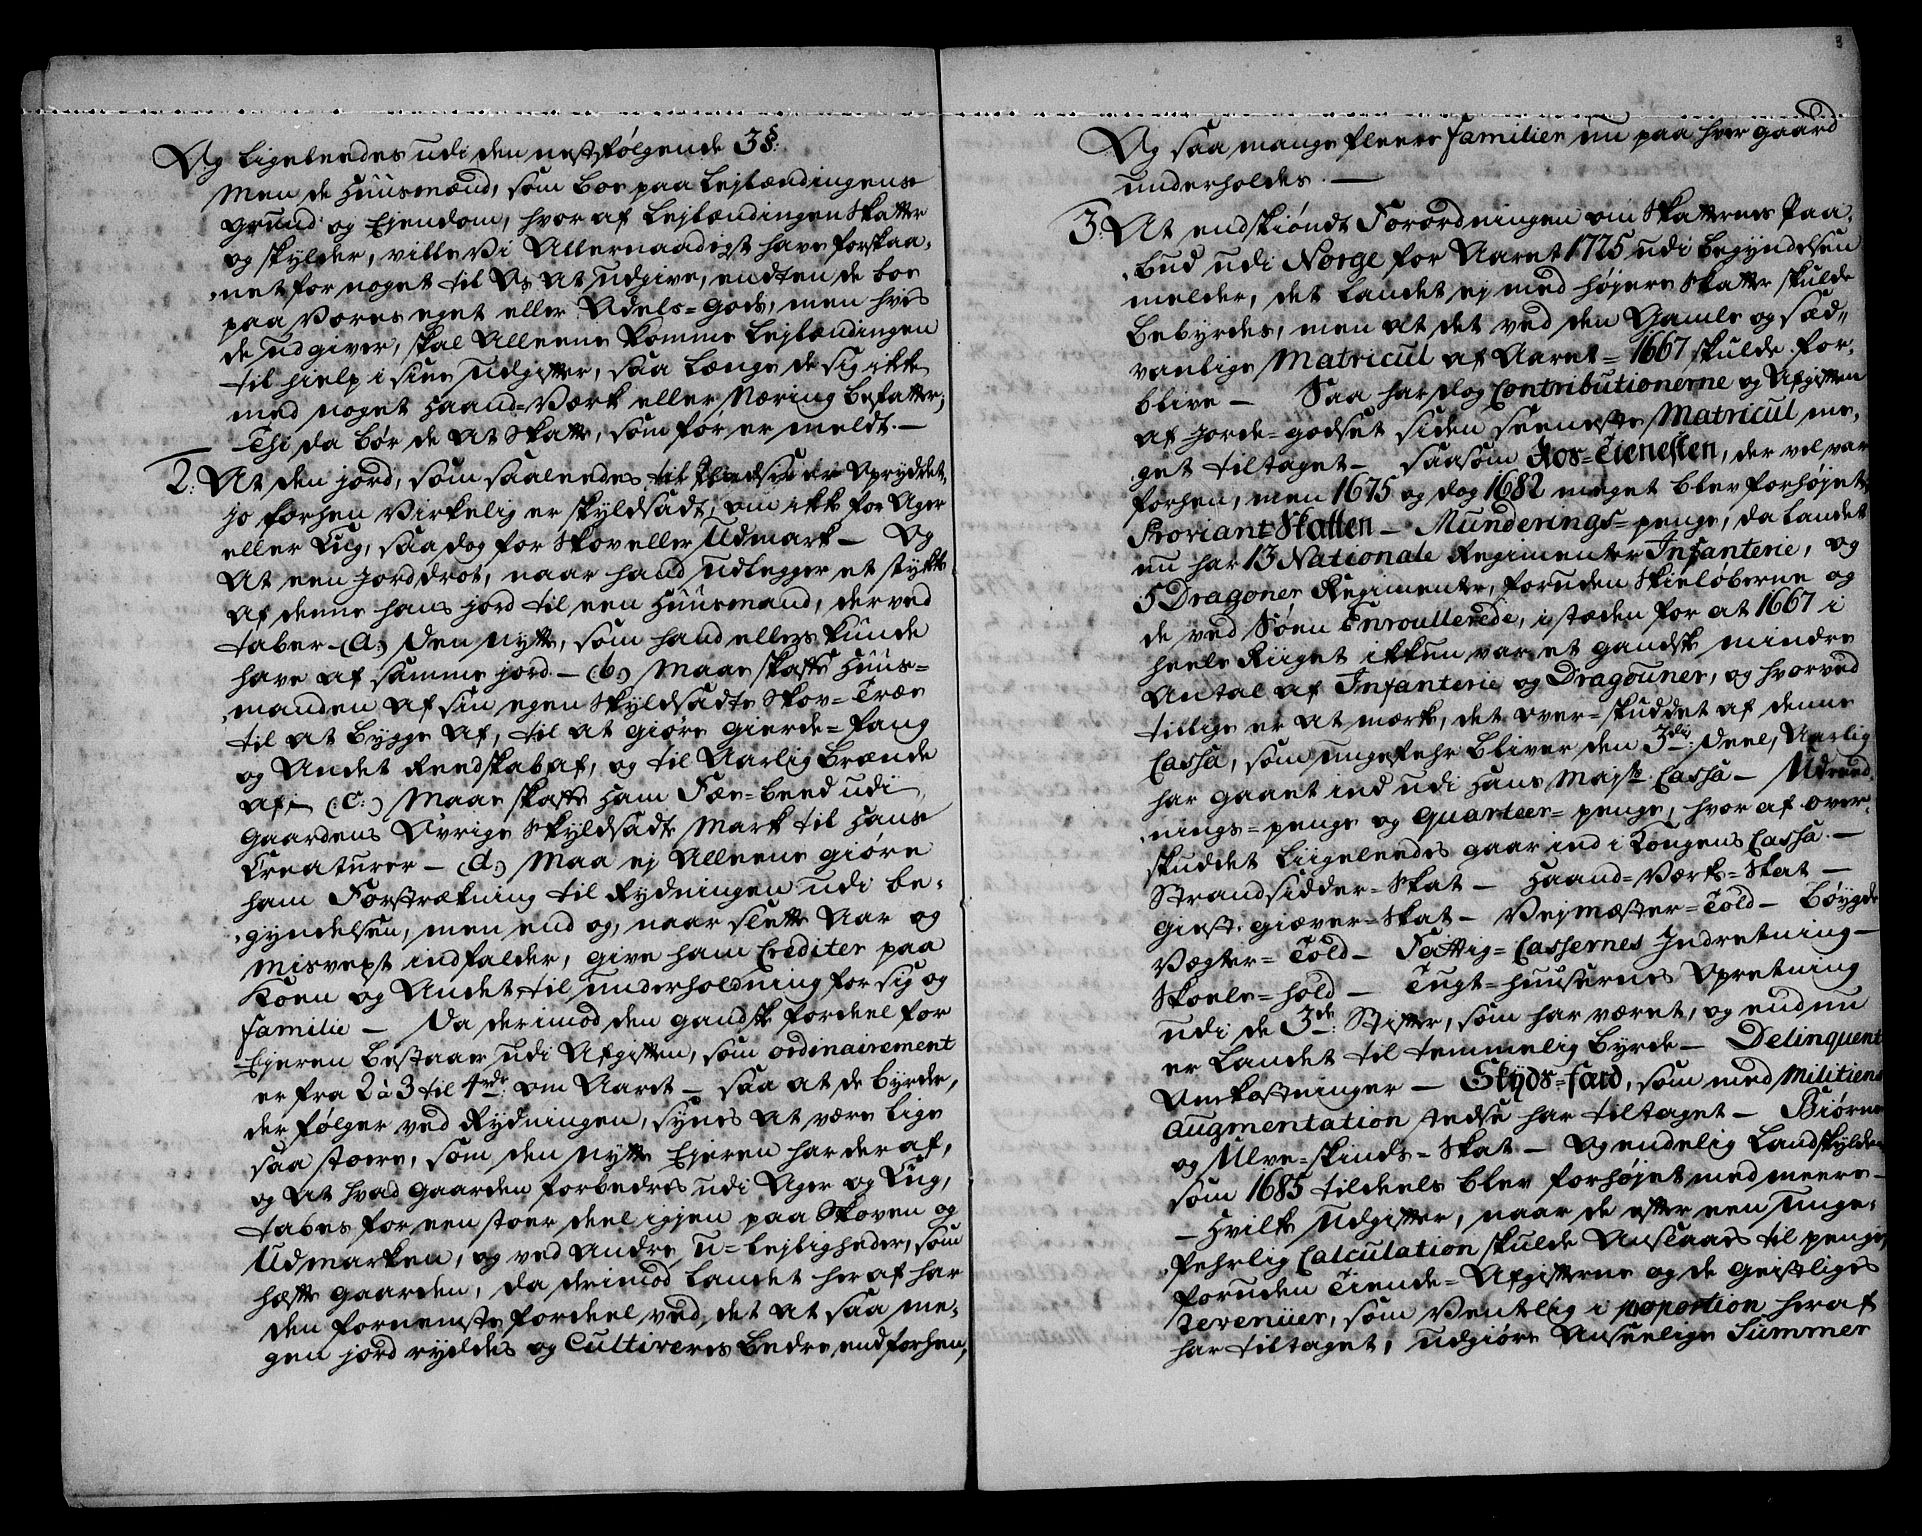 Og ligeleedes udi den nestfølgende 3§:
Men de Huusmænd, som boe paa Lejlændingens
grund og Ejendom, hvor af Lejlændingen Skatter
og skylder, ville Vi Allernaadigst have forskaa-
net for noget til Os at udgive, endten de boe
paa Vores eget eller Adels-Gods, men hvis
de udgiver, skal Alleene komme Lejlændingen
til hielp i sine Udgifter, saa længe de sig ikke
med noget Haand-Værk eller Næring befatter;
Thi da bør de at Skatte, som før er meldt. —
2: At den jord, som saaleedes til Pladsen er Opryddet,
jo forhen Virkelig er skyldsadt, om ikke for Ager
eller Eng, saa dog for Skov eller Udmark — Og
At een Jorddrot, naar hand udlegger et støkke
af denne hans jord til een Huusmand, derved
taber (a) Den nytte, som hand ellers kunde
have af samme jord. — (b) Maae skaffe Huus-
manden af sin egen Skyldsadte Skov-Træe
til at bygge af, til at giøre gierde-fang
og Andet Reedskab af, og til Aarlig Brænde
af — (c:) Maae skaffe ham Fæe-beed udi
Gaardens Øvrige Skyldsadte Mark til hans
Creaturer — (d) Maa ej Alleene giøre
ham Forstrækning til Rydningen udi be-
gyndelsen, men end og, naar slette Aar og
Misvext indfalder, give ham Crediter paa
Koen og Andet til underholdning for sig og
familie — Da derimod den gandske fordeel for
Ejeren bestaaer udi Afgiften, som ordinairement
er fra 2 à 3 til 4 rdr: om Aaret — saa at de byrder,
der følger ved Rydningen, synes at være lige
saa stoere, som den nytte Ejeren har der af,
og at hvad Gaarden forbedres udi Ager og Eng,
tabes for een stoer deel igjen paa Skoven og
Udmarken, og ved Andre U-lejligheder, som
hæfte Gaarden, da derimod Landet her af har
den fornemste fordeel ved, det at saa me-
gen jord ryddes og Cultiveres bedre end forhen,
3
Og saa mange fleere familier nu paa hver gaard
underholdes. —
3: At endskiøndt Forordningen om Skatternes Paa-
bud udi Norge for Aaret 1725 udi begyndelsen
melder, det Landet ej med højere Skatter skulde
bebyrdes, men at det ved den Gamle og sæd-
vanlige Matricul af Aaret = 1667 skulde for-
blive — Saa har dog Contributionerne og Afgiften
af Jorde-godset siden seeneste Matricul me-
get tiltaget — saasom Ros-Tienesten, der vel var
forhen, men 1675 og dog 1682 meget blev forhøjet,
Proviant Skatten — Munderings-penge, da Landet
nu har 13 Nationale Regimenter Infanterie, og
5 Dragoner Regimenter, foruden Skieløberne og
de ved Søen Enroullerede, i stæden for at 1667 i
heele Riiget ikkun var et gandske mindre
Antal af Infanterie og Dragouner, og hvorved
tillige er at mærke, det over-skuddet af denne
Cassa, som ungefehr bliver den 3die: Deel, Aarlig
har gaaet ind udi Hans Mayts Cassa — Udreed-
nings-penge og quarteer-penge, hvor af over-
skuddet liigeleedes gaar ind i Kongens Cassa. —
Strandsidder-Skat — Haand-Værks-Skat —
giest-giæver-Skat — Vejmester-Told — Bøygde
Vægter-Told — Fattig-Cassernes Indretning —
Skoele-hold — Tugt-huusernes Opretning
udi de 3de: Stifter, som har været, og end nu
er Landet til temmelig byrde — Delinquent
Omkostninger — Skyds-færd, som med Militiens
Augmentation tedse har tiltaget — Biørne
og Ulve-skinds-Skat — Og endelig Landskylden
som 1685 tildeels blev forhøjet med meere —
— Hvilke Udgifter, naar de efter een Unge-
fehrlig Calculation skulde Anslaaes til penge,
foruden Tiende-Afgifterne og de geistliges
revenüer, som Ventlig i proportion heraf
har tiltaget, udgiøre Anseelige Summer